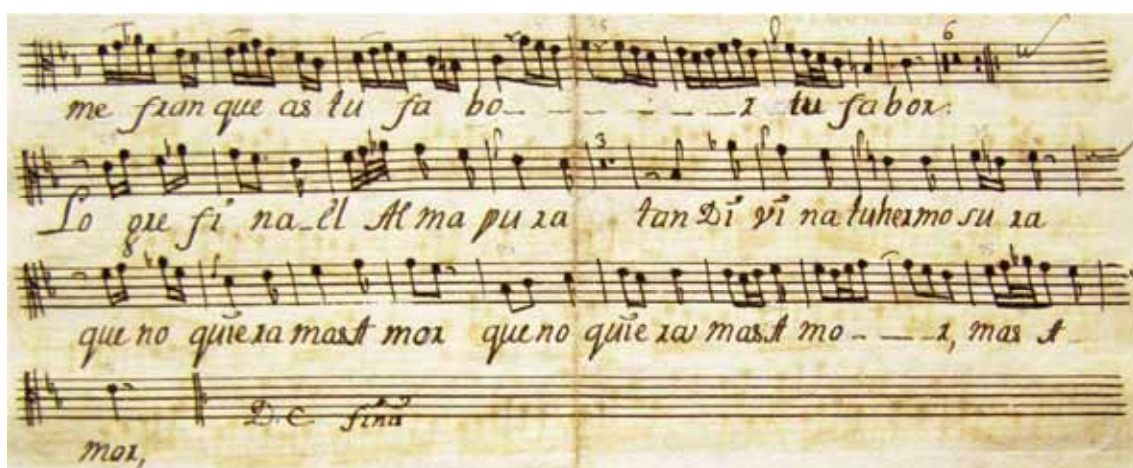 6
me franque as tu fa bo_ _ _ _ _ _ _ r tu fabor.
3
Lo gre fi na_el Alma pura tan Di vi na tuhermo su ra
que no quiera mas A mor que no quiera mas A mo_ _ _ r, mas A_
D. C. fina
mor,